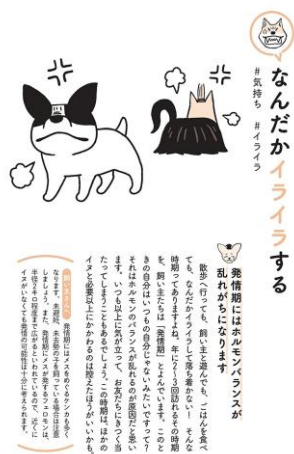 なんだかイライラする
#気持ち #イライラ
発情期にはホルモンバランスが
乱れがちになります
散歩へ行っても、飼い主と遊んでも、ごはんを食べ
ても、なんだかイライラして落ち着かない！ そんな
時期ってありますよね。年に2〜3回訪れるその時期
を、飼い主たちは「発情期」とよんでいます。このと
きの自分はいつもの自分じゃないみたいですって？
それはホルモンのバランスが乱れるのが原因だと思い
ます。いつも以上に気が立って、お友だちにきつく当
たってしまうこともあるでしょう。この時期は、ほかの
イヌと必要以上にかかわるのは控えたほうがいいかも。
発情期にはメスをめぐるケンカも多く
なります。未避妊、未去勢のイヌを飼っている場合は注意
しましょう。また、発情期にメスが発するフェロモンは、
半径2キロ程度まで広がるといわれているので、近くに
イヌがいなくても発情の可能性は十分に考えられます。